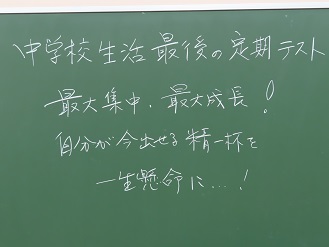 中学校生活最後の定期テスト
最大集中、最大成長！
自分が今出せる精一杯を
一生懸命に…！